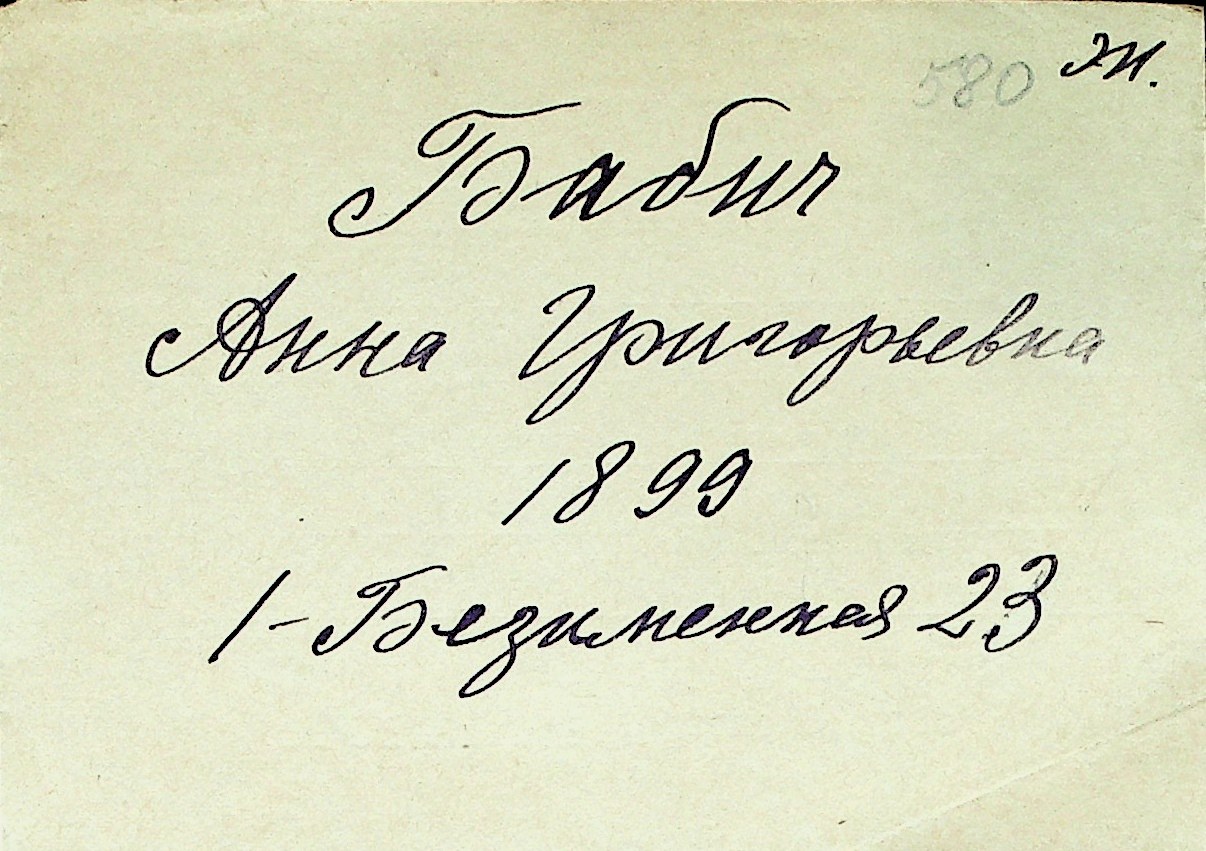 580 Ж.
Бабич
Анна Григорьевна
1899
1-Безименная 23